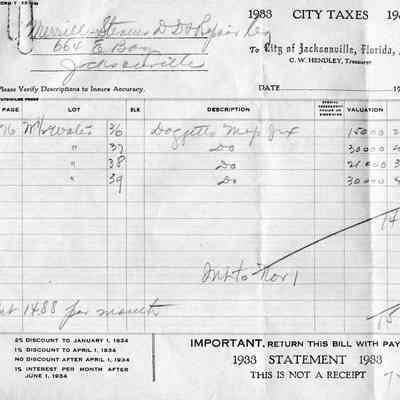 1933 CITY TAXES 19
Merrill-Stevens D D & Repair Co
664 E Bay
Jacksonville
To City of Jacksonville, Florida,
C. W. HENDLEY, Treasurer
Please Verify Descriptions to Insure Accuracy.
DATE 19
PAGE LOT BLK DESCRIPTION VALUATION
36 Doggetts Map Jax 15000
" 37 Do 30000
" 38 Do 21000
" 39 Do 30000
14
Int to Nov 1
1488 per month
15
2% DISCOUNT TO JANUARY 1, 1934
1% DISCOUNT TO APRIL 1, 1934
NO DISCOUNT AFTER APRIL 1, 1934
1% INTEREST PER MONTH AFTER
JUNE 1, 1934
IMPORTANT, RETURN THIS BILL WITH PAY
1933 STATEMENT 1933
THIS IS NOT A RECEIPT